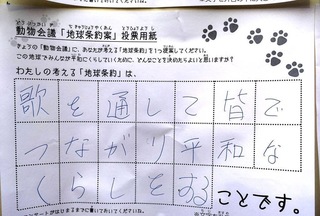 動物会議「地球条約案」投票用紙
きょうの「動物会議」に、あなたが考える「地球条約」を1つ提案してください。
この地球でみんなが平和にくらしていくために、どんなことを決めたらよいと思いますか?
わたしの考える「地球条約」は、
歌を通して皆で
つながり平和な
くらしをする
ことです。